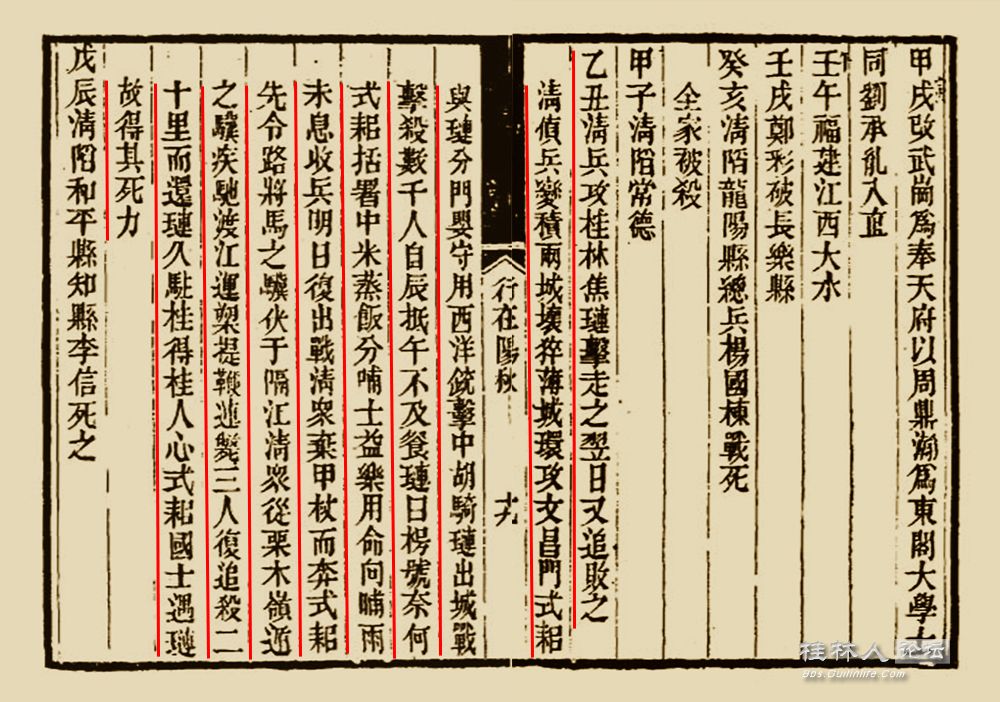 甲戌改武岡爲奉天府以周鼎瀚爲東閣大學士
同劉承胤入直
壬午福建江西大水
壬戌鄭彩破長樂縣
癸亥淸陷龍陽縣總兵楊國棟戰死
全家被殺
甲子淸陷常德
乙丑淸兵攻桂林焦璉擊走之翌日又追敗之
淸偵兵變積雨城壞猝薄城環攻文昌門式耜
行在陽秋
十九
與璉分門嬰守用西洋銃擊中胡騎璉出城戰
擊殺數千人自辰抵午不及餐璉曰枵號奈何
式耜括署中米蒸飯分哺士益樂用命向晡雨
未息收兵明日復出戰淸衆棄甲杖而奔式耜
先令路將馬之驥伏于隔江淸衆從栗木嶺遁
之驥疾馳渡江運槊提鞭連斃三人復追殺二
十里而還璉久駐桂得桂人心式耜國士遇璉
故得其死力
戊辰淸陷和平縣知縣李信死之
桂林人论坛
Bbs.Guilinlife.com